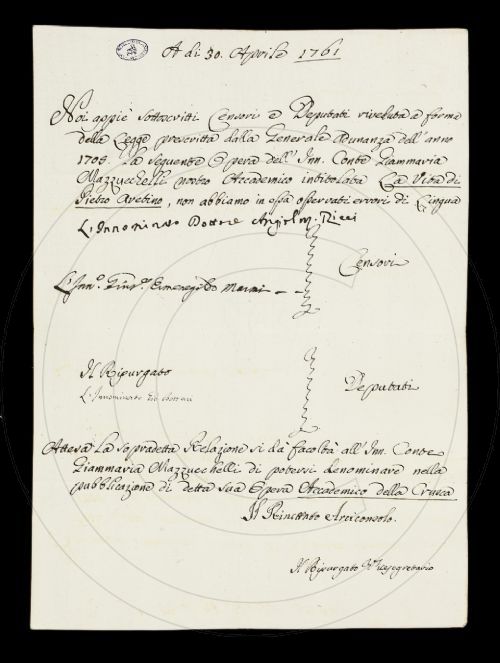 A dì 30. Aprile 1761
Noi appiè sottoscritti Censori e Deputati riveduta a forma
della Legge prescritta dalla Generale Adunanza dell'anno
1705. la seguente Opera dell'Inn. Conte Giammaria
Mazzucchelli nostro Accademico intitolata La Vita di
Pietro Aretino, non abbiamo in essa osservati errori di Lingua
L'Innominato Dottore Angiol M. Ricci
Censori
Il Ripurgato
L'Innominato
Deputati
Attesa la sopradetta Relazione si dà facoltà all'Inn. Conte
Giammaria Mazzucchelli di potersi denominare nella
pubblicazione di detta sua Opera Accademico della Crusca
Il Rinettato Arciconsolo.
Il Ripurgato Vicesegretario